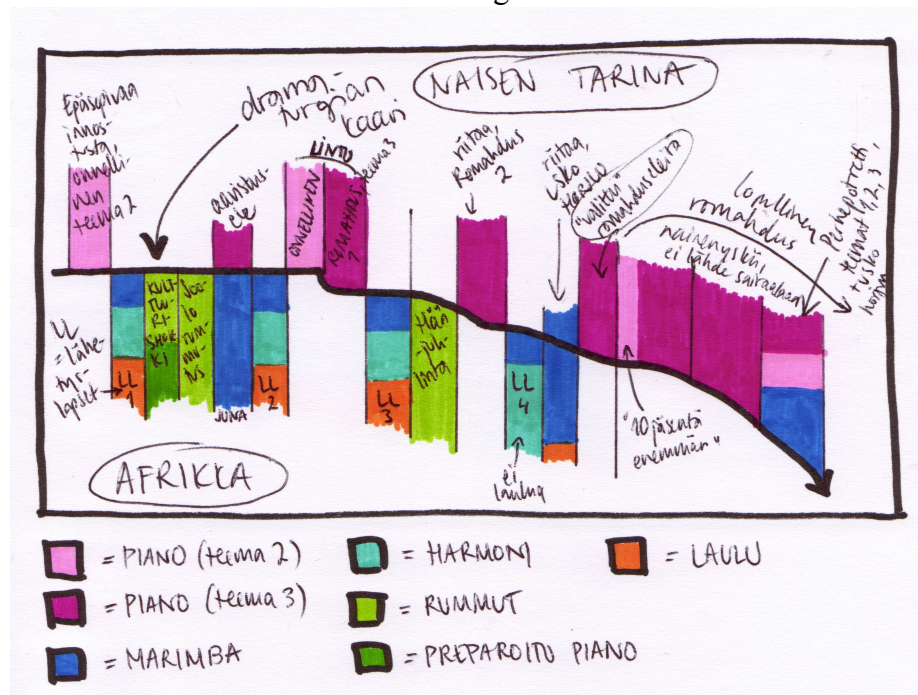 NAISEN TARINA
Epäsopivaa
innos-
tusta,
onnelli-
nen
teema 2
drama-
turgian
kaari
aavistus-
ele
LINTU
ONNELLINEN
ROMAHDUS, teema 3
riitaa,
Romahdus
2
riitaa,
usko
"valittu"
romahduseleitä
lopullinen
romahdus
nainen yksin,
ei lähde sairaalaan
Perhepotretti
teemat 1, 2, 3,
+ usko
LL
= lähe-
tys-
lapset
LL
1
KULT-
TUU-
RI-
SHOK-
KI
Soo-
lo
rum-
mu-
tus
JUNA
LL
2
LL
3
Hän
juh-
linta
LL
4
ei
laulua
"10 päsentä
enemmän"
AFRIKKA
= PIANO (teema 2)
= HARMONI
= LAULU
= PIANO (teema 3)
= RUMMUT
= MARIMBA
= PREPAROITU PIANO